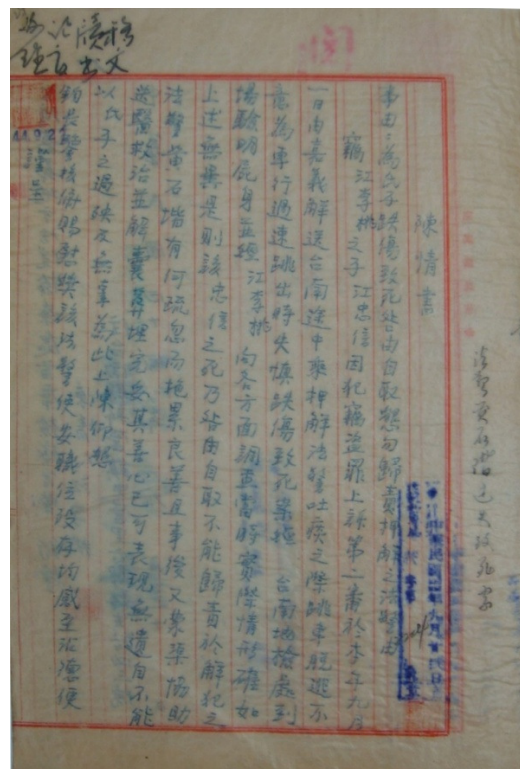 陳情書
事由：為氏子跌傷致死咎由自取懇勿歸責押解之法警由
竊江李桃之子江忠信因犯竊盜罪上訴第二審於本年九月
一日由嘉義解送台南途中乘押解法警吐痰之際跳車脫逃不
意為車行過速跳出時失慎跌傷致死業經 台南地檢處到
場驗明屍身並經江李桃向各方面調查當時實際情形確如
上述無異是則該忠信之死乃咎由自取不能歸責於解犯之
法警黃石堦有何疏忽而拖累良善且事後又蒙渠協助
送醫救治並解囊葬埋完妥其善心已可表現無遺自不能
以氏子之過殃及無辜爲此上陳仰懇
鈞長鑒核俯賜慰獎該法警使安職位歿存均感至沾德便
謹呈